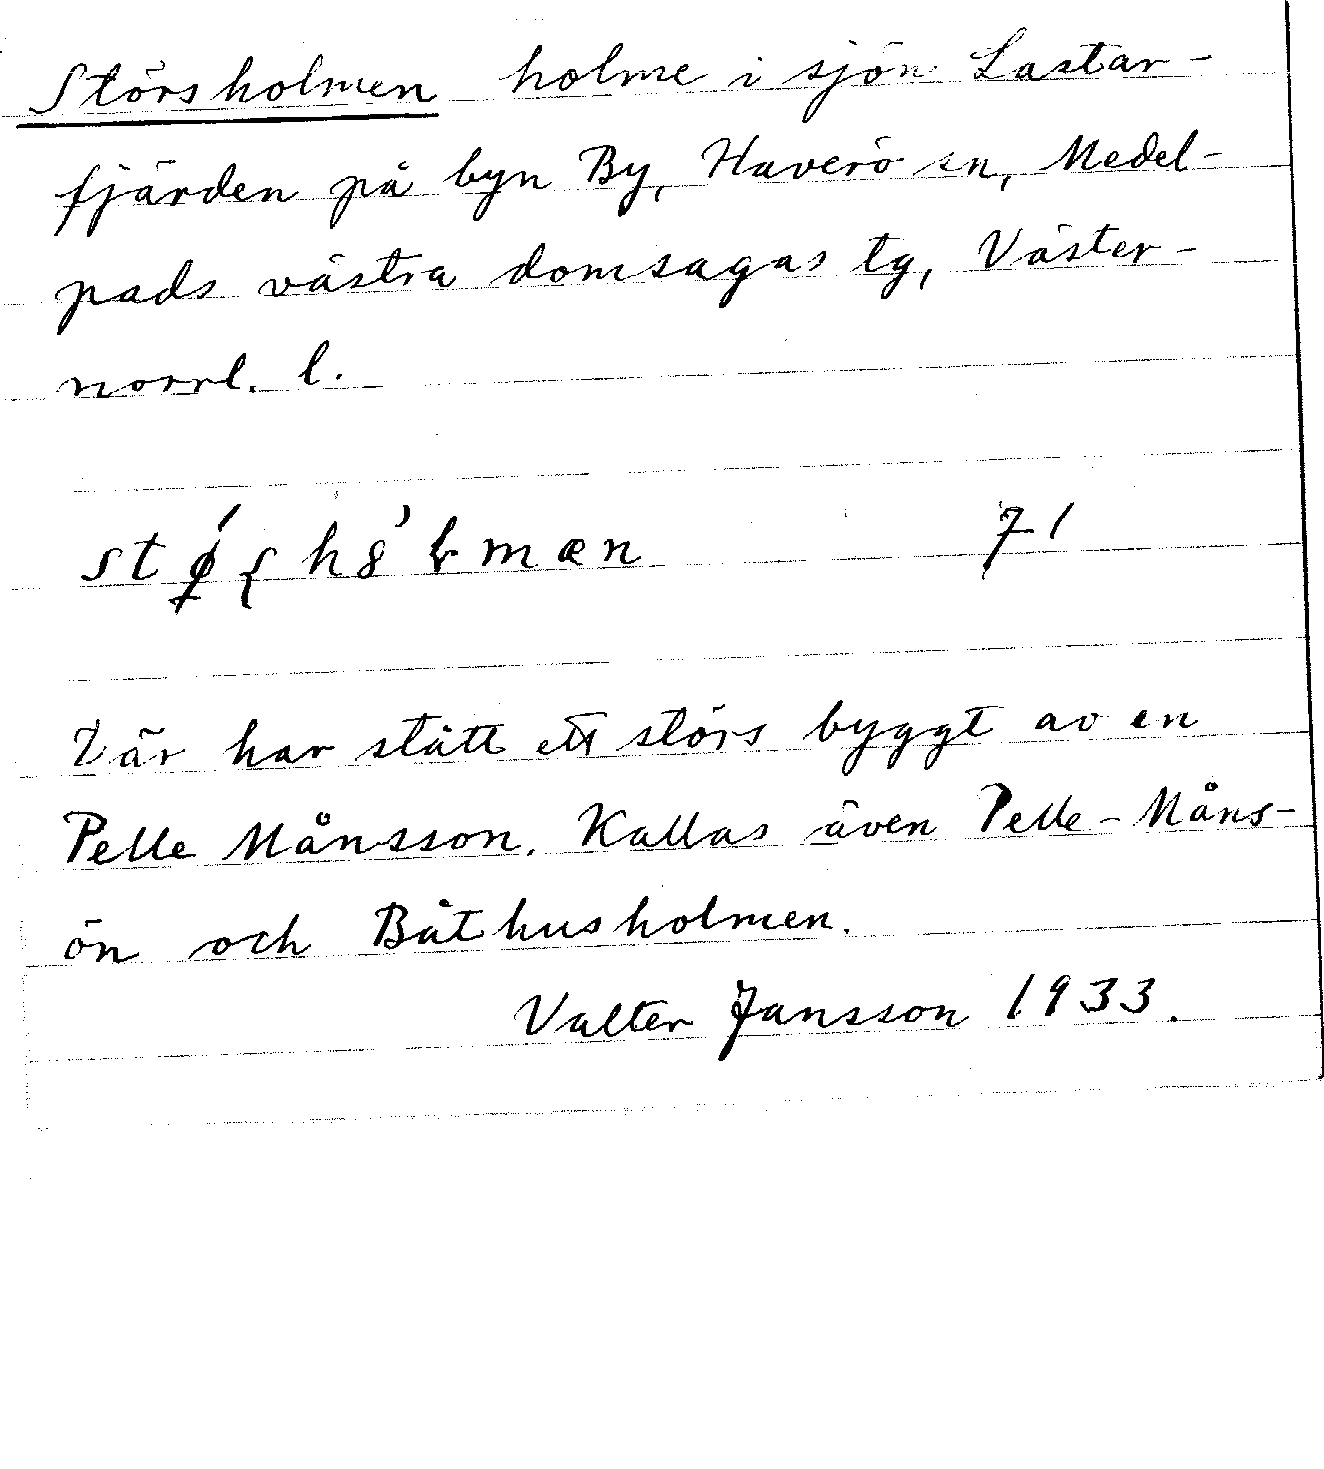 Störsholmen holme i sjön Lastar-
fjärden på byn By, Haverö sn, Medel-
pads västra domsagas tg, Väster-
norrl. l.
71
Där har stått ett störs byggt av en
Pelle Månsson. Kallas även Pelle-Måns-
ön och Båthusholmen.
Valter Jansson 1933.